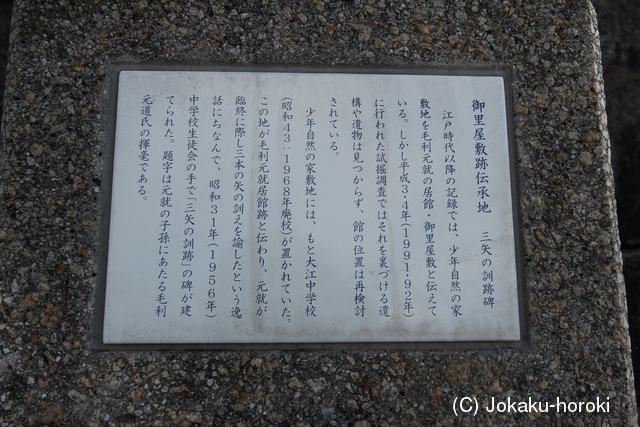 御里屋敷跡伝承地　三矢の訓跡碑
江戸時代以降の記録では、少年自然の家
敷地を毛利元就の居館・御里屋敷と伝えて
いる。しかし平成３・４年（１９９１・９２年）
に行われた試掘調査ではそれを裏づける遺
構や遺物は見つからず、館の位置は再検討
されている。
少年自然の家敷地には、もと大江中学校
（昭和４３：１９６８年廃校）が置かれていた。
この地が毛利元就居館跡と伝わり、元就が
臨終に際し三本の矢の訓えを諭したという逸
話にちなんで、昭和３１年（１９５６年）
中学校生徒会の手で「三矢の訓跡」の碑が建
てられた。題字は元就の子孫にあたる毛利
元道氏の揮毫である。
(C) Jokaku-horoki